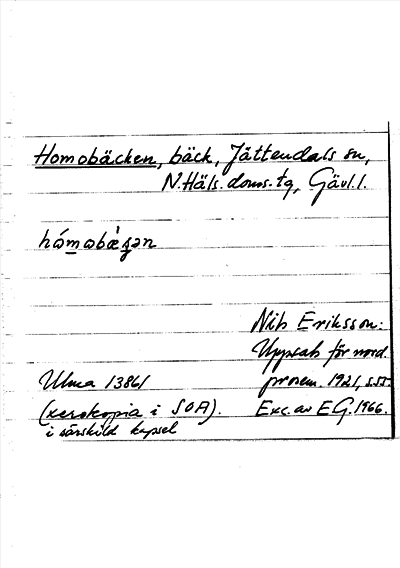 Homobäcken, bäck, Jättendals sn,
N.Häls. doms. tg, Gävl. l.
hómobǽgən
Nils Eriksson:
Uppsats för nord.
prosem. 1921, s.57.
Ulma 13861
(xerokopia i SOA).
Exc. av E G. 1966.
i särskild kapsel